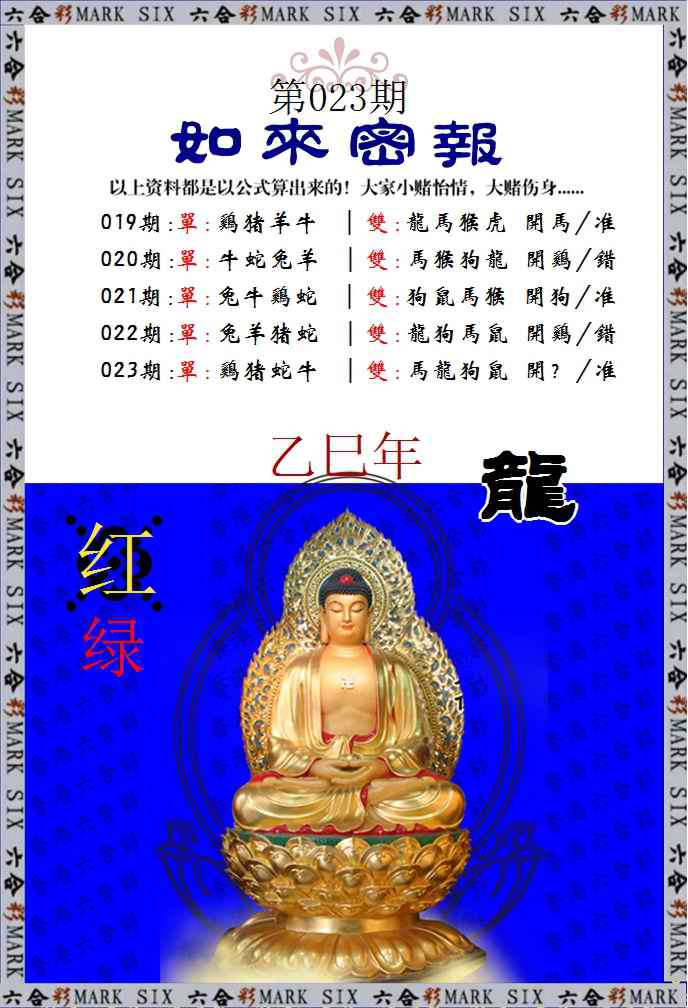 六合彩MARK SIX 六合彩MARK SIX 六合彩MARK SIX 六合彩MARK SIX 六合彩MARK SIX
第023期
如來密報
以上资料都是以公式算出来的！大家小赌怡情，大赌伤身......
019期:單:鷄猪羊牛 │雙:龍馬猴虎 開馬/准
020期:單:牛蛇兔羊 │雙:馬猴狗龍 開鷄/錯
021期:單:兔牛鷄蛇 │雙:狗鼠馬猴 開狗/准
022期:單:兔羊猪蛇 │雙:龍狗馬鼠 開鷄/錯
023期:單:鷄猪蛇牛 │雙:馬龍狗鼠 開？/准
乙巳年
龍
红
绿
六合彩MARK SIX 六合彩MARK SIX 六合彩MARK SIX 六合彩MARK SIX 六合彩MARK SIX